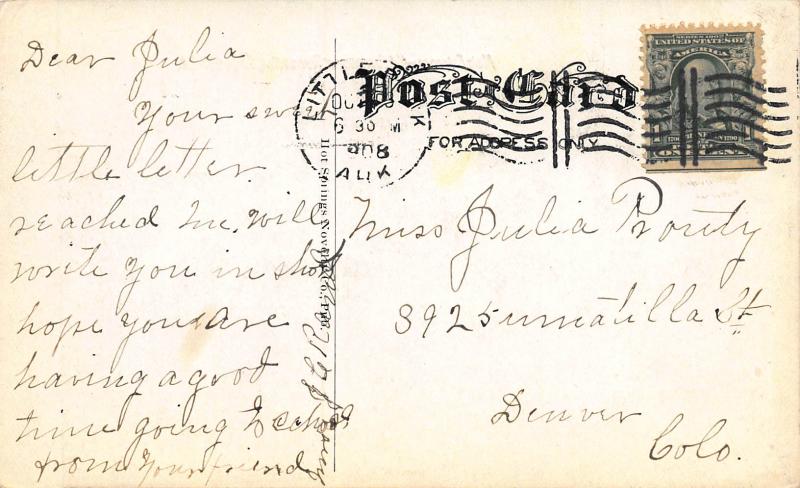 Dear Julia
Your sweet
little letter
reached me. will
write you in short
hope you are
having a good
time going to school
from your friend
LITTLE R
OC
6 30 M
1908
ARK
Post Card
FOR ADDRESS ONLY
SERIES 1902
UNITED STATES OF
AMERICA
ONE CENT
Hot Springs Novelty Co.
Miss Julia Prouty
3925 umatilla St
Denver
Colo.